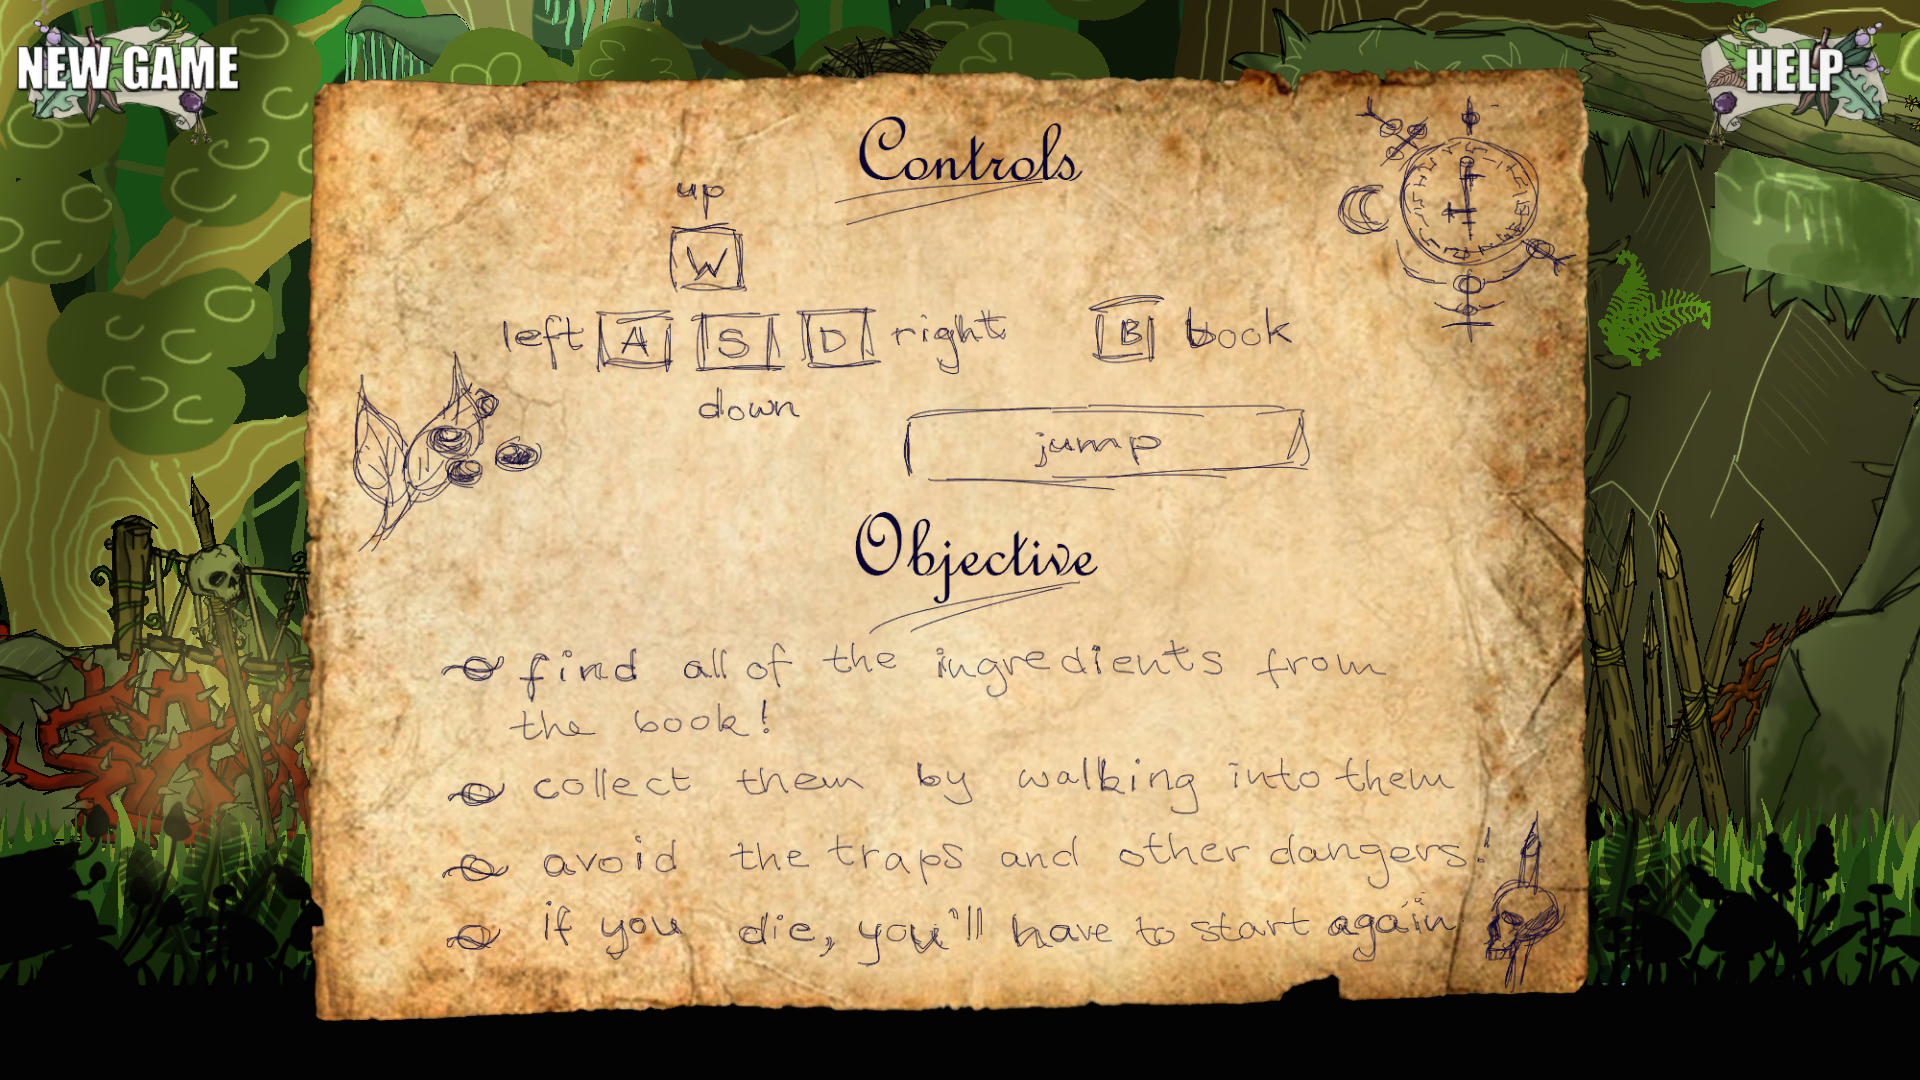 NEW GAME
HELP
Controls
up
W
left A S D right B book
down
jump
Objective
find all of the ingredients from
the book!
collect them by walking into them
avoid the traps and other dangers!
if you die, you'll have to start again